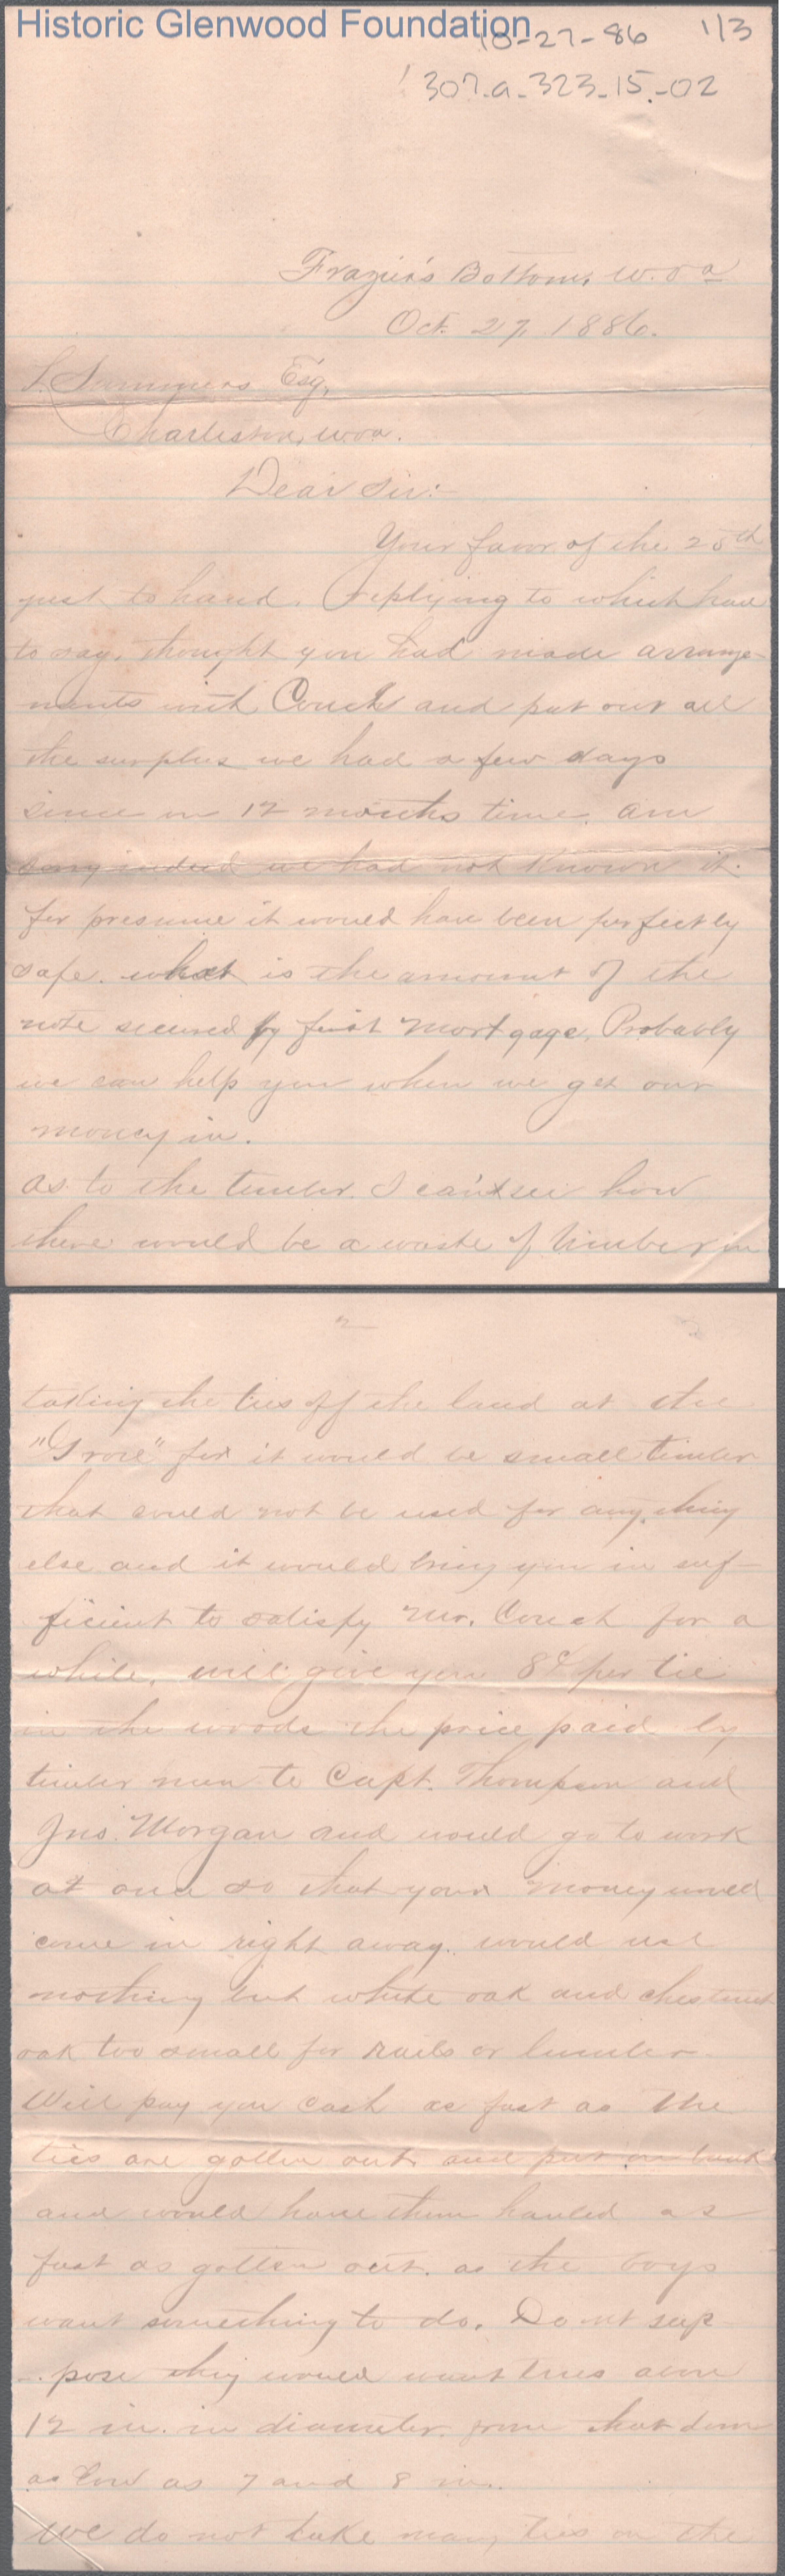 Historic Glenwood Foundation
10-27-86 1/3
307-a-323-15-02
Frazier's Bottom, W. Va
Oct. 27, 1886.
L. Summers Esq,
Charleston, W Va.
Dear Sir:-
Your favor of the 25th
just to hand, replying to which have
to say, thought you had made arrange-
ments with Couch and put out all
the surplus we had a few days
since on 12 months time. am
sorry indeed we had not known it.
for presume it would have been perfectly
safe. what is the amount of the
note secured by first Mortgage, Probably
we can help you when we get our
money in.
as to the timber. I can't see how
there would be a waste of timber in
2
taking the ties off the land at the
"Grove" for it would be small timber
that could not be used for any thing
else and it would bring you in suf-
ficient to satisfy Mr. Couch for a
while, will give you 8¢ per tie
in the woods the price paid by
timber men to Capt. Thompson and
Jno. Morgan and would go to work
at once so that your money would
come in right away. would use
nothing but white oak and chestnut
oak too small for rails or lumber.
Will pay you cash as fast as the
ties are gotten out and put on bank
and would have them hauled as
fast as gotten out. as the boys
want something to do. Do not sup-
pose they would want trees above
12 in. in diameter. from that down
as low as 7 and 8 in.
We do not take many ties on the